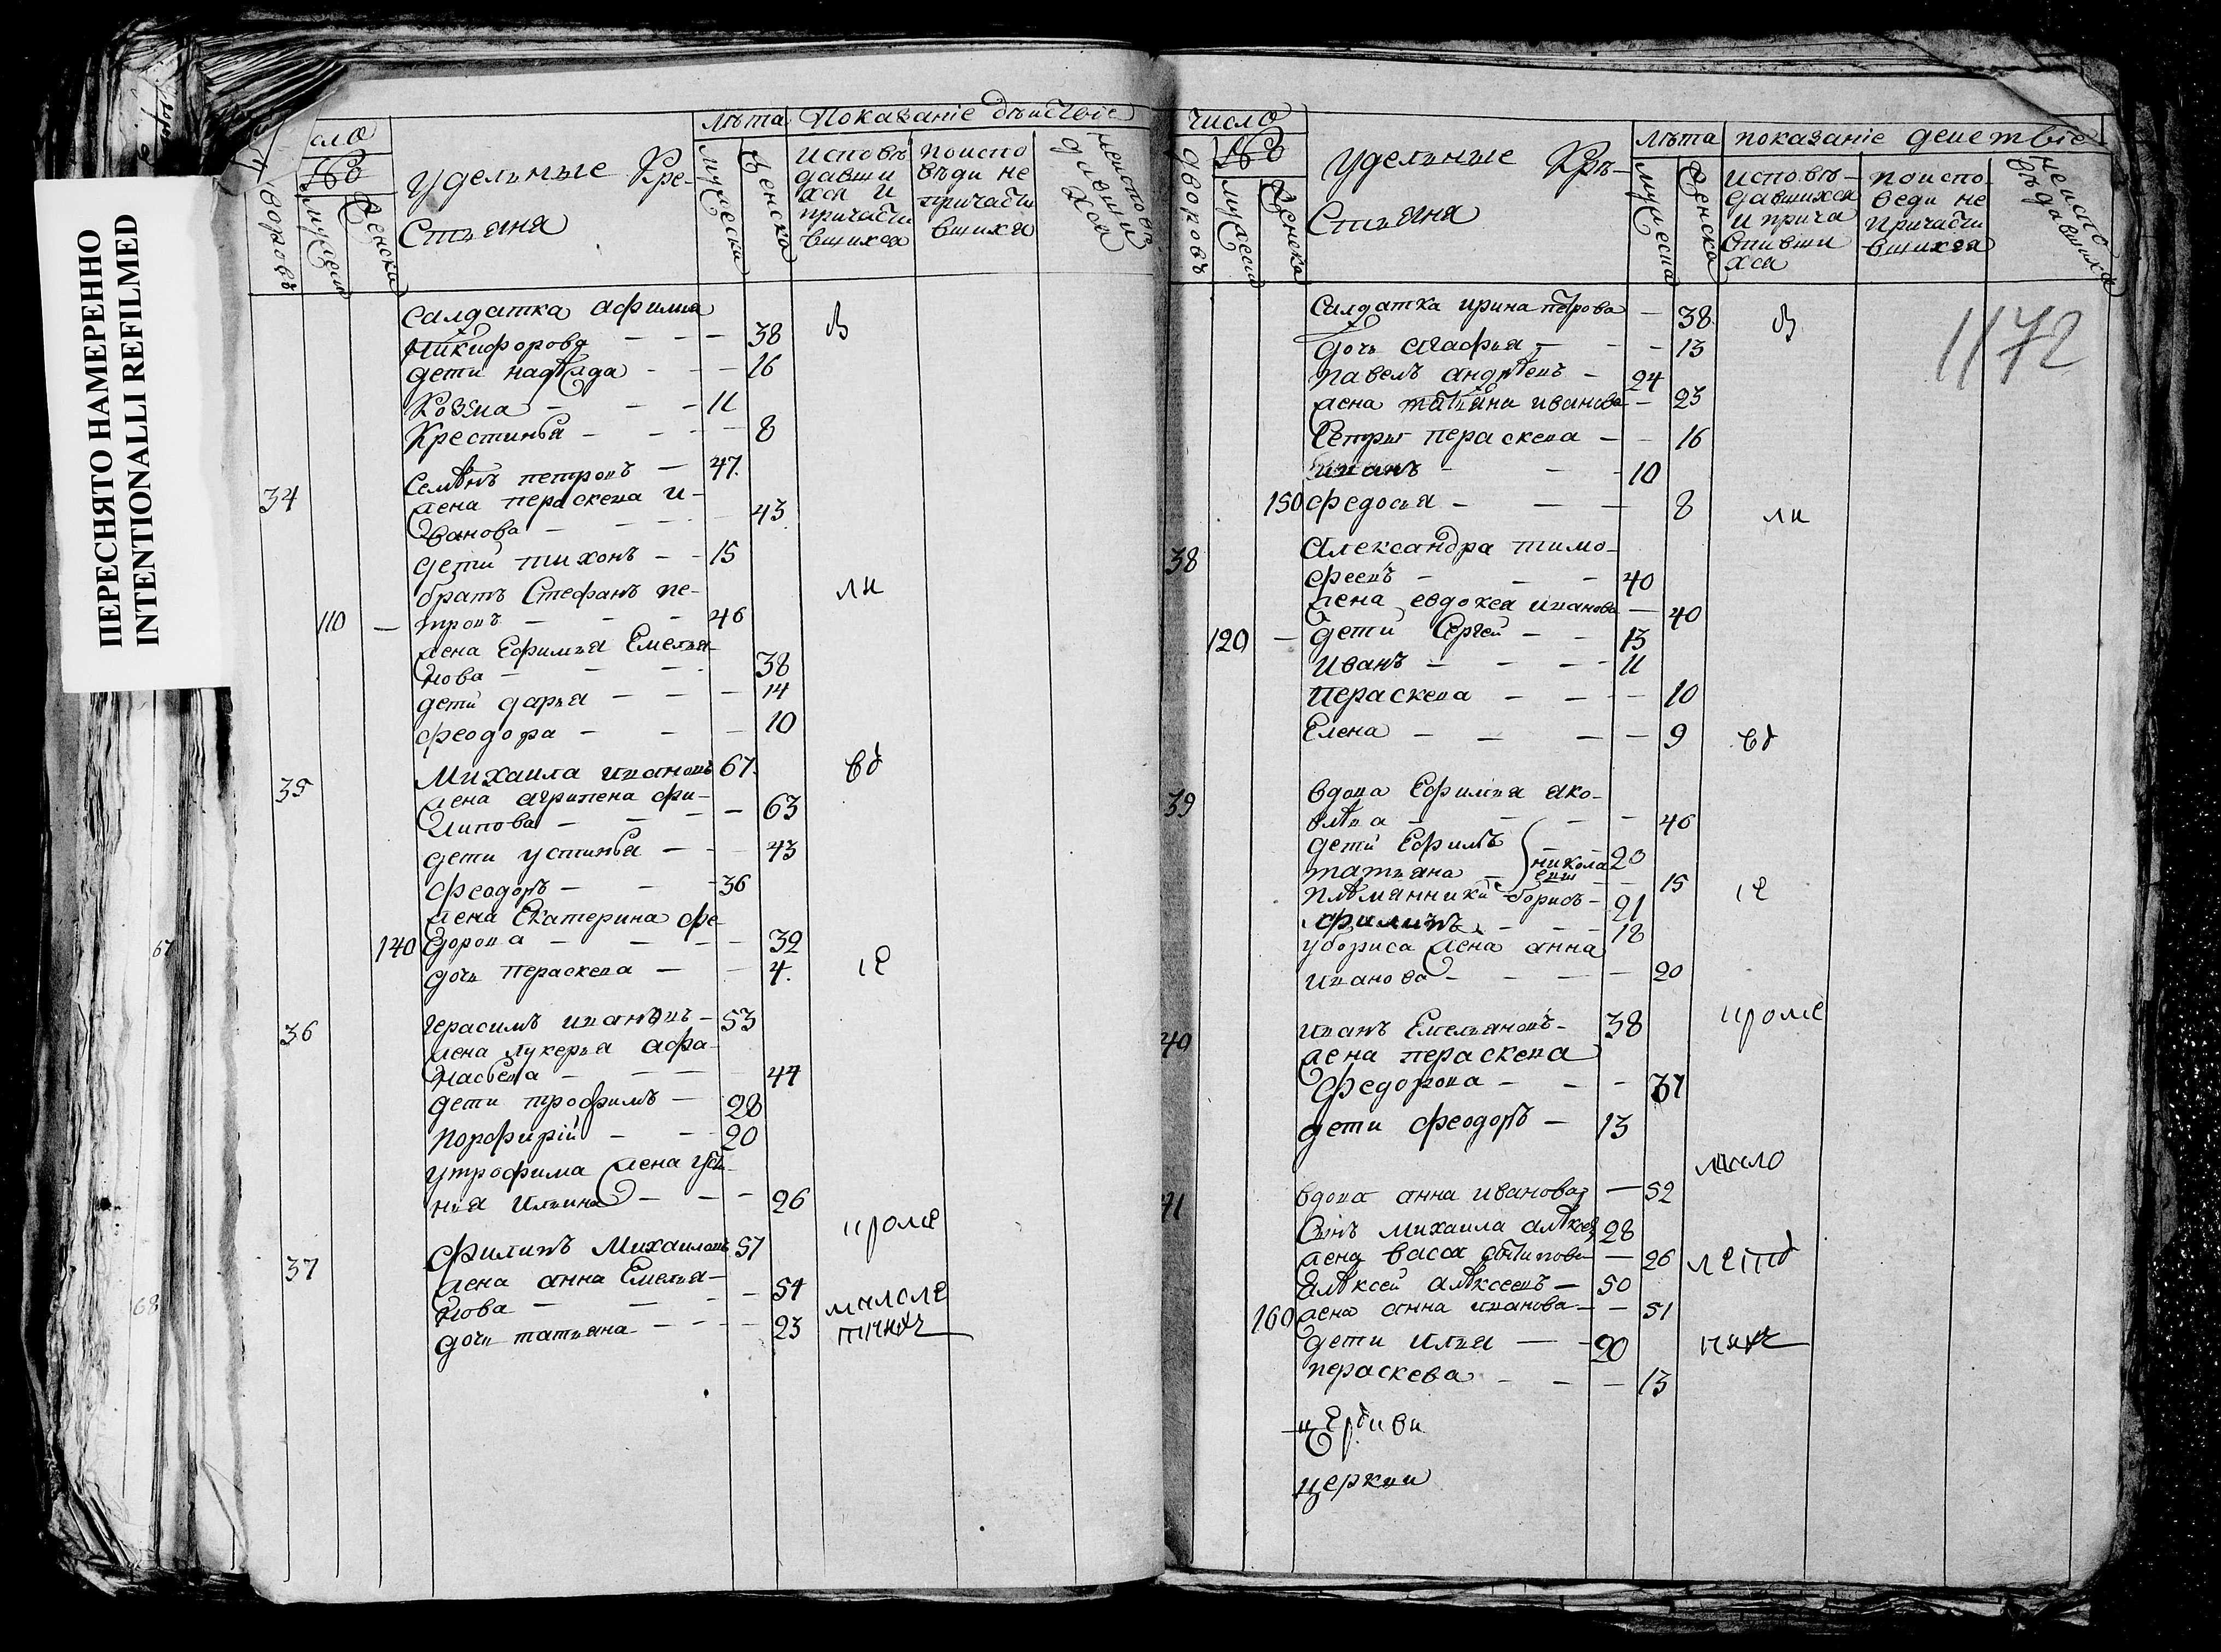 ПЕРЕСНЯТО НАМЕРЕННО
INTENTIONALLI REFILMED
сло
№
дворовъ
мужеска
женска
Уделныые Кре-
стьяня
лѣта
мужеска
женска
Показанiе дѣиствiе
исповѣ
давши
хся и
причасти
вшихся
поиспо
вѣди не
причасти
вшихся
неисповѣ
давши
хся
салдатка афимья
Никифорова - - - 38 в
дети надѣжда - - - 16
Козма - - - 11
Крестинья - - - 8
34 Семѣнъ петровъ - 47.
жена пераскева и-
ванова - - - 43
дети тихонъ - - 15
братъ Стефанъ пе- ли
110 - тровъ - - - 46
жена Ефимья Емелья-
нова - - - 38
дети дарья - - - 14
феодора - - - 10
35 Михаила ивановъ 67. вб
жена агрипена фи-
липова - - - 63
дети устинья - - - 43
феодоръ - - - 36
жена Екатерина фе
140 дорова - - - 32
дочь пераскева - - 4. се
36 герасимъ ивановъ - 53
жена лукерья афа-
насьева - - - 44
дети трофимъ - 28
порфирiй - - - 20
утрофима жена усти-
нья Ильина - - - 26
37 филипъ Михаиловъ 57 кроме
жена анна Емелья-
нова - - - 54 малоле
дочь татьяна - - - 23 тних
67
68
число
№
дворовъ
мужеска
женска
Уделныые Крѣ-
стьяня
лѣта
мужеска
женска
показанiе деиствiе
исповѣ-
давшихся
и прича
стивши
хся
поиспо-
веди не
причасти
вшихся
неиспо
вѣдавшихся
1172
Салдатка ирина петрова - 38. в
дочь агафья - - - 13
павелъ андрѣевъ - 24
жена татьяна иванова - 23
сетры пераскева - - 16
иванъ - - - 10
150 федосья - - - 8 ли
38 Александра тимо-
феевъ - - - 40
жена евдокея иванова - 40
120 - дети Сергей - - 13
иванъ - - - 11
пераскева - - - 10
Елена - - - 9 вб
39 вдова Ефимья яко-
влѣва - - - 46
дети Ефимъ - - 20
татьяна - николаевы - 15
плѣманники борисъ - 21 се
филипъ - - - 18
убориса жена анна
иванова - - - 20
40 иванъ Емельяновъ - 38 кроме
жена пераскева
Федорова - - - 37
дети феодоръ - 13
мало
41 вдова анна иванова - 52
сынъ михаила алѣксеев 28
жена васса филипова - 26 летнб
Алѣксей алѣксеевъ - 50
160 жена анна иванова - - 51
дети илья - - 20 них
пераскева - - - 13
церкви
церкви